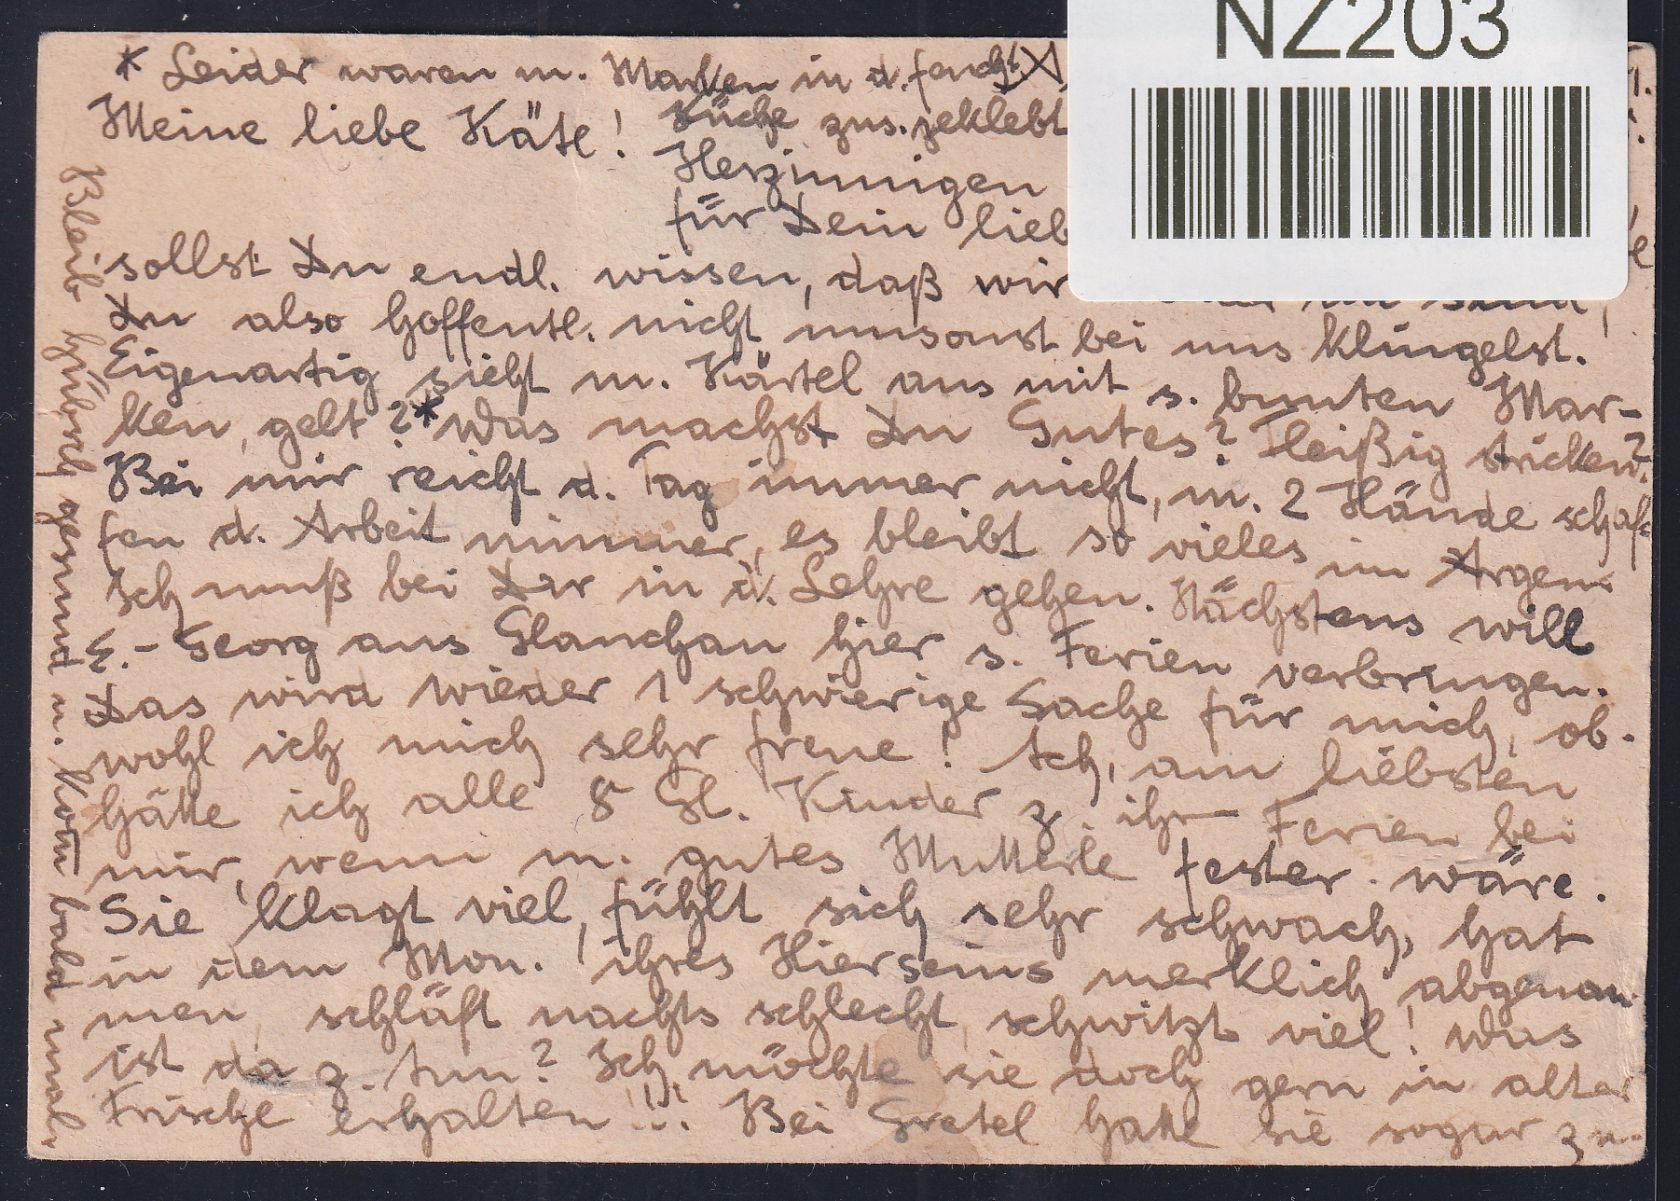 NZ203
* Leider waren m. Marken in d. feucht.
Küche zus.geklebt
Meine liebe Käte!
Herzinnigen
für Dein lieb
sollst Du endl. wissen, daß wir
Du also hoffentl. nicht umsonst bei uns klingelst.
Eigenartig sieht m. Kärtel aus mit s. bunten Mar-
ken, gelt?* Was machst Du Gutes? Fleißig stricken?
Bei mir reicht d. Tag immer nicht, m. 2 Hände schaf-
fen d. Arbeit nimmer, es bleibt so vieles im Argen.
Ich muß bei Dir in d. Lehre gehen. Nächstens will
- Georg aus Glauchau hier s. Ferien verbringen.
Das wird wieder 1 schwierige Sache für mich, ob-
wohl ich mich sehr freue! Ach, am liebsten
hätte ich alle 8 Gl. Kinder z. ihr Ferien bei
mir, wenn m. gutes Mutterle fester wäre.
Sie klagt viel, fühlt sich sehr schwach, hat
in dem Mon. ihres Hierseins merklich abgenom
men, schläft nachts schlecht, schwitzt viel! Was
ist da z. tun? Ich möchte sie doch gern in alter
Frische erhalten!!! Bei Gretel hatte sie sogar zu-
Bleib hübsch gesund u. kom̅ bald mal